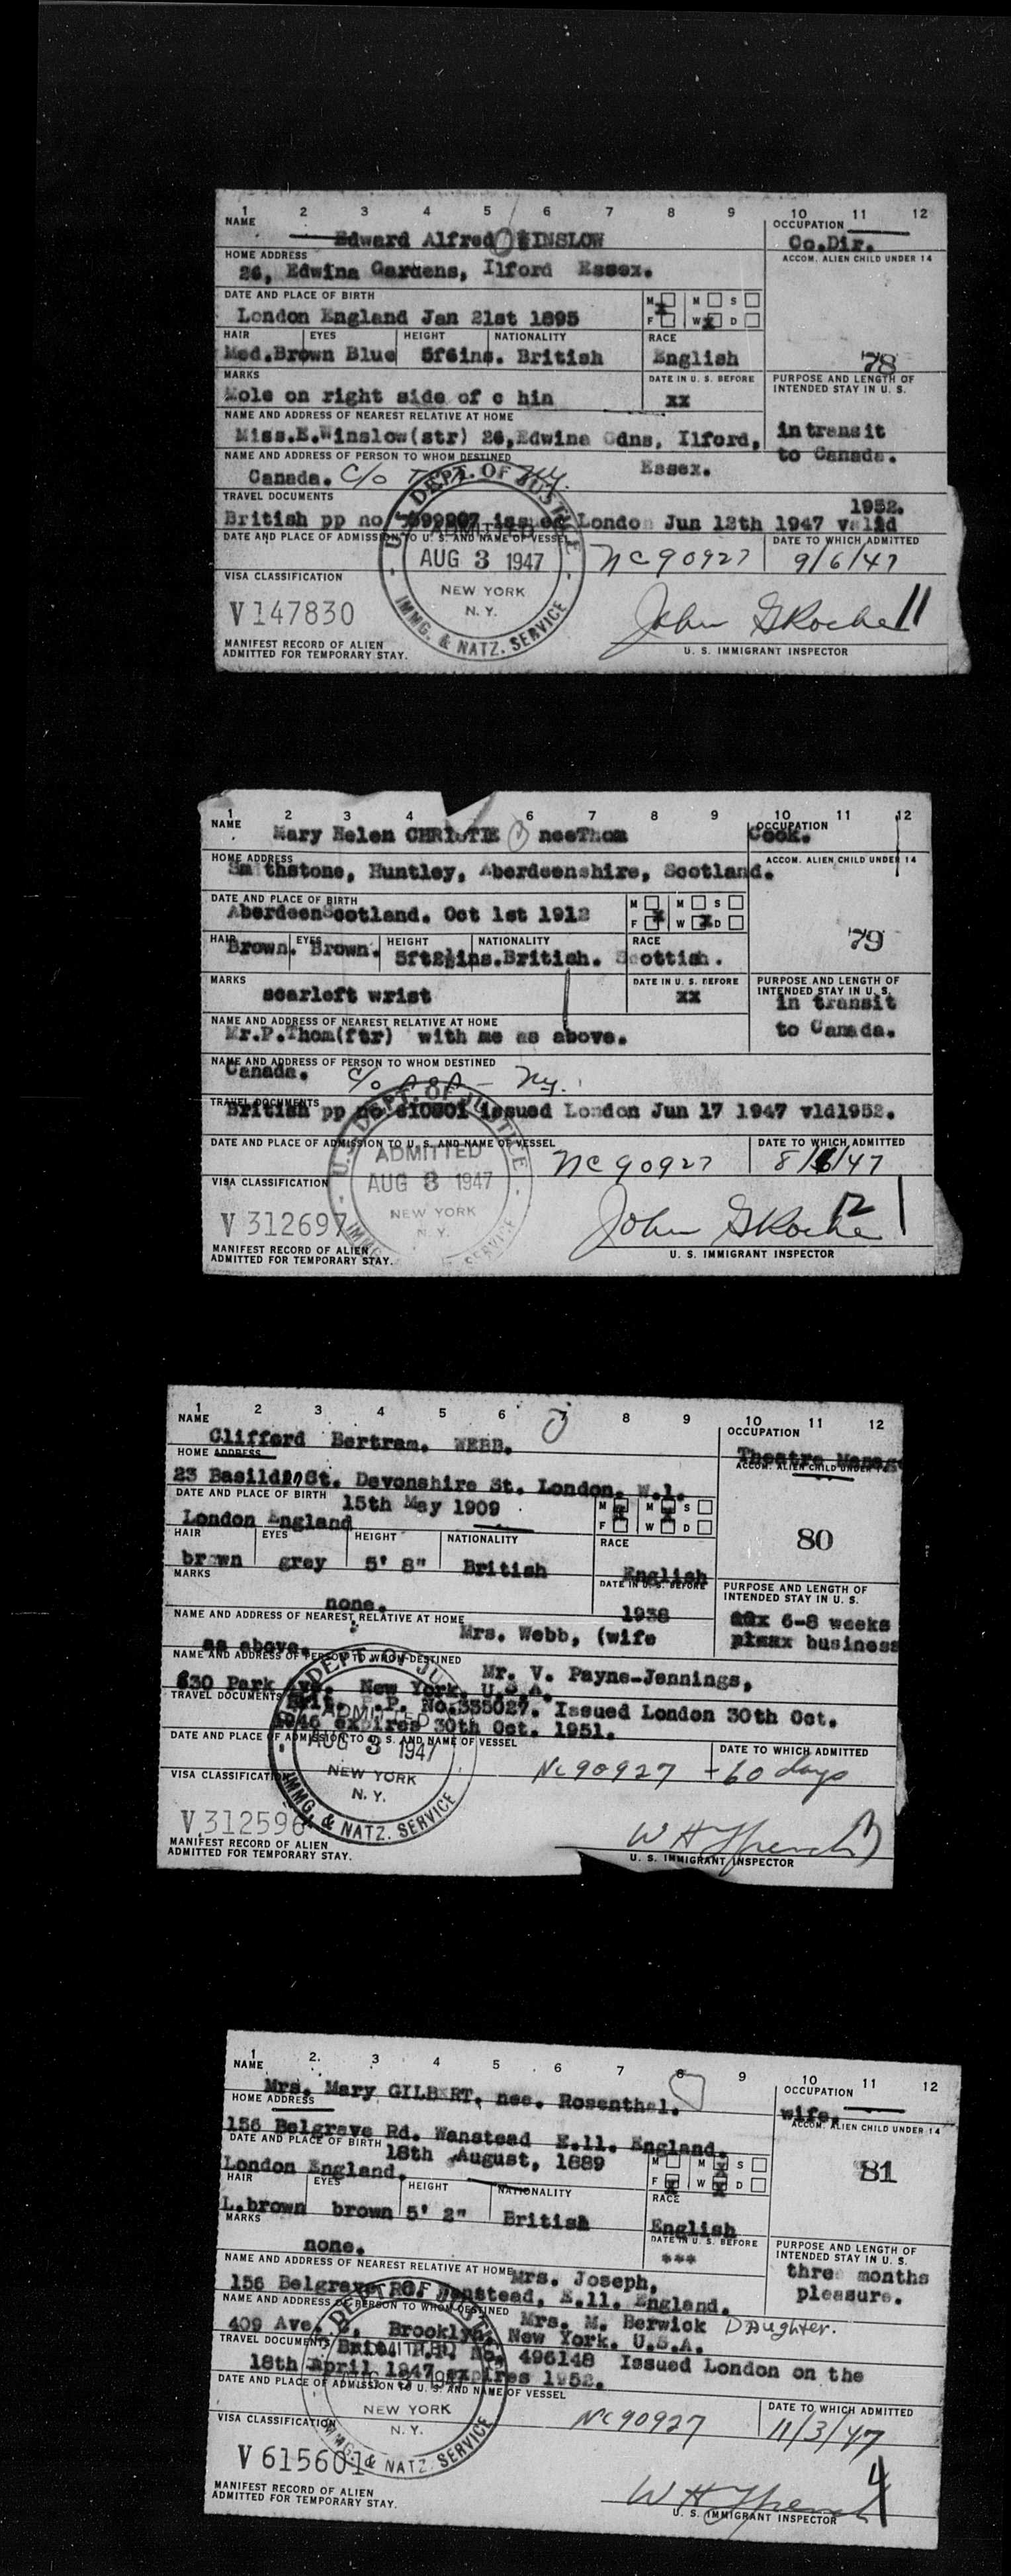 1 2 3 4 5 6 7 8 9 10 11 12
NAME OCCUPATION
Edward Alfred WINSLOW Co.Dir.
HOME ADDRESS ACCOM. ALIEN CHILD UNDER 14
26, Edwina Gardens, Ilford Essex.
DATE AND PLACE OF BIRTH M M S
London England Jan 21st 1895 F W D
HAIR EYES HEIGHT NATIONALITY RACE
Med.Brown Blue 5f6ins. British English 78
MARKS DATE IN U. S. BEFORE PURPOSE AND LENGTH OF INTENDED STAY IN U. S.
Mole on right side of c hin xx
NAME AND ADDRESS OF NEAREST RELATIVE AT HOME
Miss.E.Winslow(str) 26,Edwina Gdns, Ilford, in transit
NAME AND ADDRESS OF PERSON TO WHOM DESTINED Essex. to Canada.
Canada. c/o N.Y.
TRAVEL DOCUMENTS 1952.
British pp no issued London Jun 12th 1947 valid
DATE AND PLACE OF ADMISSION TO U. S. AND NAME OF VESSEL DATE TO WHICH ADMITTED
NC90927 9/6/47
U.S. DEPT. OF JUSTICE
ADMITTED
AUG 3 1947
NEW YORK
N. Y.
IMMG. & NATZ. SERVICE
VISA CLASSIFICATION
V 147830 John G Roche 11
MANIFEST RECORD OF ALIEN
ADMITTED FOR TEMPORARY STAY. U. S. IMMIGRANT INSPECTOR
1 2 3 4 6 7 8 9 10 11 12
NAME OCCUPATION
Mary Helen CHRISTIE neeThom Cook.
HOME ADDRESS ACCOM. ALIEN CHILD UNDER 14
Smithstone, Huntley, Aberdeenshire, Scotland.
DATE AND PLACE OF BIRTH M M S
AberdeenScotland. Oct 1st 1912 F W D
HAIR EYES HEIGHT NATIONALITY RACE 79
Brown. Brown. 5ft2½ins.British. Scottish.
MARKS DATE IN U. S. BEFORE PURPOSE AND LENGTH OF INTENDED STAY IN U. S.
scarleft wrist xx in transit
NAME AND ADDRESS OF NEAREST RELATIVE AT HOME to Canada.
Mr.P.Thom(ftr) with me as above.
NAME AND ADDRESS OF PERSON TO WHOM DESTINED
Canada. c/o N.Y.
TRAVEL DOCUMENTS
British pp no 610801 issued London Jun 17 1947 vld1952.
DATE AND PLACE OF ADMISSION TO U. S. AND NAME OF VESSEL DATE TO WHICH ADMITTED
NC90927 8/6/47
U.S. DEPT. OF JUSTICE
ADMITTED
AUG 3 1947
NEW YORK
N. Y.
IMMG. SERVICE
VISA CLASSIFICATION
V 312697 John G Roche 12
MANIFEST RECORD OF ALIEN
ADMITTED FOR TEMPORARY STAY. U. S. IMMIGRANT INSPECTOR
1 2 3 4 5 6 7 8 9 10 11 12
NAME OCCUPATION
Clifford Bertram. WEBB. Theatre Manage
HOME ADDRESS ACCOM. ALIEN CHILD UNDER 14
23 Basildon St. Devonshire St. London. W.1.
DATE AND PLACE OF BIRTH 15th May 1909 M M S
London England F W D
HAIR EYES HEIGHT NATIONALITY RACE 80
brown grey 5' 8" British English
MARKS DATE IN U. S. BEFORE PURPOSE AND LENGTH OF INTENDED STAY IN U. S.
none. 1938 6-8 weeks
NAME AND ADDRESS OF NEAREST RELATIVE AT HOME Mrs. Webb, (wife business
as above.
NAME AND ADDRESS OF PERSON TO WHOM DESTINED Mr. V. Payne-Jennings,
630 Park Ave. New York. U.S.A.
TRAVEL DOCUMENTS Brit. P.P. No.335027. Issued London 30th Oct.
1946 expires 30th Oct. 1951.
DATE AND PLACE OF ADMISSION TO U. S. AND NAME OF VESSEL DATE TO WHICH ADMITTED
NC90927 +60 days
DEPT. OF JUSTICE
ADMITTED
AUG 3 1947
NEW YORK
N. Y.
IMMG. & NATZ. SERVICE
VISA CLASSIFICATION
V 312596
MANIFEST RECORD OF ALIEN
ADMITTED FOR TEMPORARY STAY. U. S. IMMIGRANT INSPECTOR
1 2. 3 4 5 6 7 8 9 10 11 12
NAME OCCUPATION
Mrs. Mary GILBERT, nee. Rosenthal. wife.
HOME ADDRESS ACCOM. ALIEN CHILD UNDER 14
156 Belgrave Rd. Wanstead E.11. England.
DATE AND PLACE OF BIRTH 18th August, 1889 M M S
London England. F W D
HAIR EYES HEIGHT NATIONALITY RACE 81
L.brown brown 5' 2" British English
MARKS DATE IN U. S. BEFORE PURPOSE AND LENGTH OF INTENDED STAY IN U. S.
none. *** three months
NAME AND ADDRESS OF NEAREST RELATIVE AT HOME Mrs. Joseph, pleasure.
156 Belgrave Rd. Wanstead, E.11. England.
NAME AND ADDRESS OF PERSON TO WHOM DESTINED Mrs. M. Berwick Daughter.
409 Ave. Brooklyn, New York. U.S.A.
TRAVEL DOCUMENTS Brit. P.P. No. 496148 Issued London on the
18th April 1947 expires 1952.
DATE AND PLACE OF ADMISSION TO U. S. AND NAME OF VESSEL DATE TO WHICH ADMITTED
NC90927 11/3/47
DEPT. OF JUSTICE
NEW YORK
N. Y.
IMMG. & NATZ. SERVICE
VISA CLASSIFICATION
V 615601 4
MANIFEST RECORD OF ALIEN
ADMITTED FOR TEMPORARY STAY. U. S. IMMIGRANT INSPECTOR